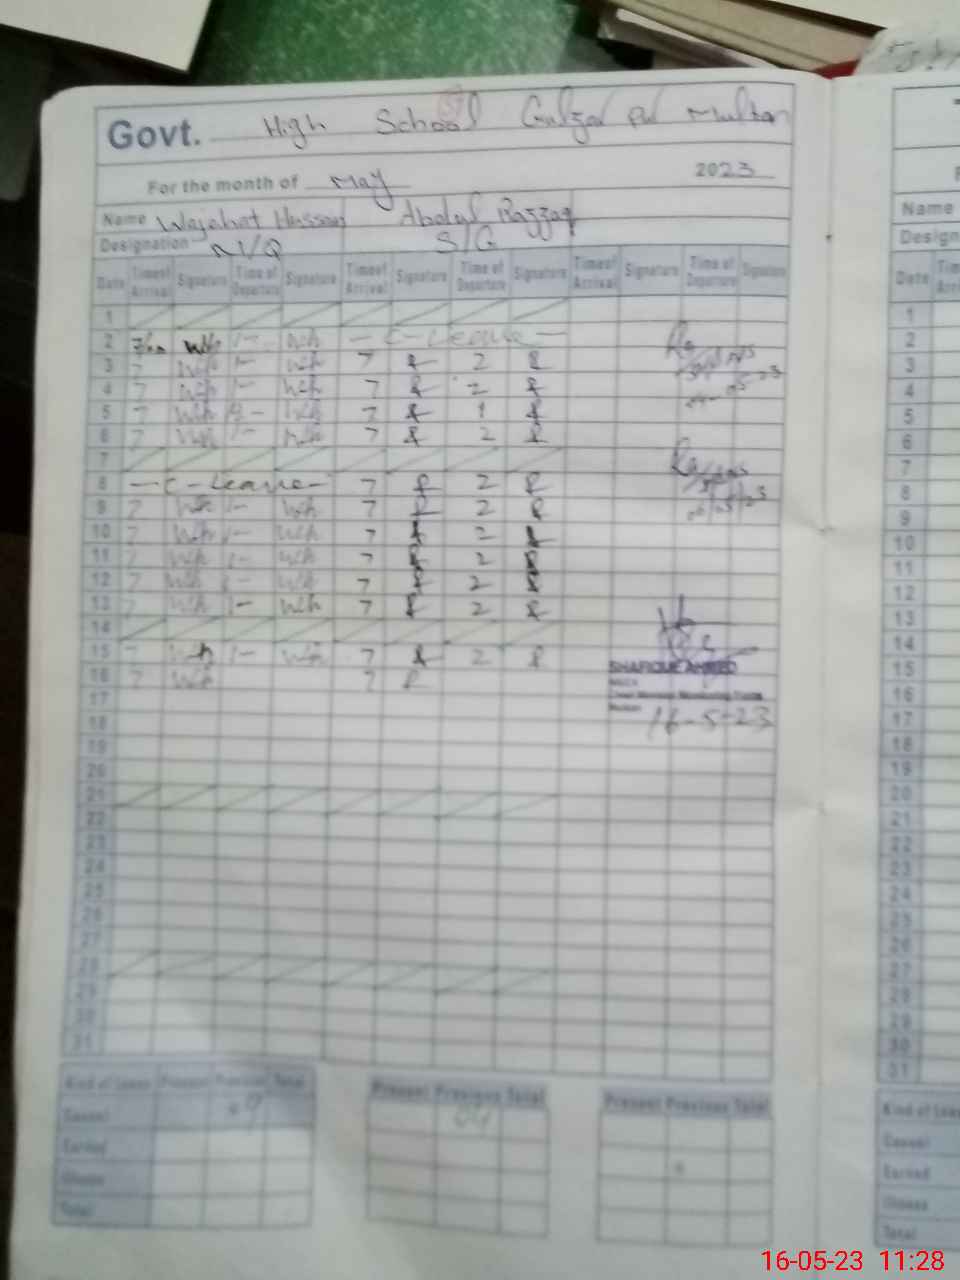 Govt. High School Gulzar pur Multan
For the month of May 2023
Name Wajahat Hassan Abdul Razzaq
Designation N/Q S/G
Date Time of Arrival Signature Time of Departure Signature Time of Arrival Signature Time of Departure Signature Time of Arrival Signature Time of Departure Signature
1
2 W/h 1- W/h - C-Leave -
3 7 W/h 1- W/h 7 2
4 7 W/h 1- W/h 7 2
5 7 W/h W/h 7 1
6 7 W/h 1- W/h 7 2
7
8 -C-Leave- 7 2
9 7 W/h 1- W/h 7 2
10 7 W/h 1- W/h 7 2
11 7 W/h 1- W/h 7 2
12 7 W/h 1- W/h 7 2
13 7 W/h 1- W/h 7 2
14
15 7 W/h 1- W/h 7 2
16 7 W/h 7
SHAFIQUE AHMED
Multan
16-5-23
17
18
19
20
21
22
23
24
25
26
27
28
29
30
31
Kind of Leave Present Previous Total Present Previous Total Present Previous Total
Casual 04
Earned
Illness
Total
Name
Date
1
2
3
4
5
6
7
8
9
10
11
12
13
14
15
16
17
18
19
20
21
22
23
24
25
26
27
28
29
30
31
Casual
Earned
Illness
Total
16-05-23 11:28